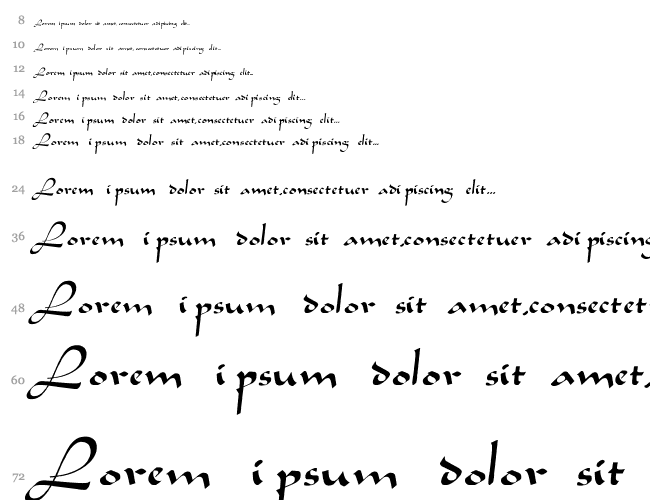 8 Lorem ipsum dolor sit amet,consectetuer adipiscing elit...
10 Lorem ipsum dolor sit amet,consectetuer adipiscing elit...
12 Lorem ipsum dolor sit amet,consectetuer adipiscing elit...
14 Lorem ipsum dolor sit amet,consectetuer adipiscing elit...
16 Lorem ipsum dolor sit amet,consectetuer adipiscing elit...
18 Lorem ipsum dolor sit amet,consectetuer adipiscing elit...
24 Lorem ipsum dolor sit amet,consectetuer adipiscing elit...
36 Lorem ipsum dolor sit amet,consectetuer adipiscing
48 Lorem ipsum dolor sit amet,consectet
60 Lorem ipsum dolor sit amet,
72 Lorem ipsum dolor sit